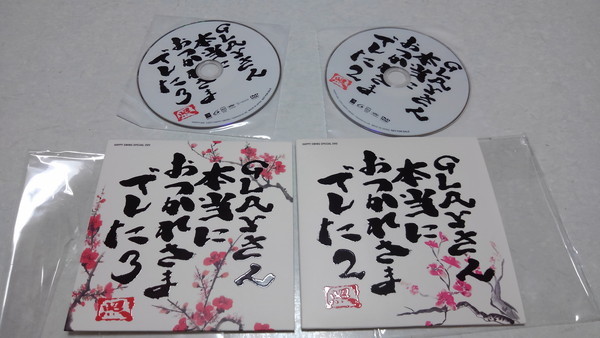 GLAYさん
本当に
おつかれさま
でした3
GLAYさん
本当に
おつかれさま
でした2
HAPPY SWING OFFICIAL DVD
GLAYさん
本当に
おつかれさま
でした3
HAPPY SWING OFFICIAL DVD
GLAYさん
本当に
おつかれさま
でした2